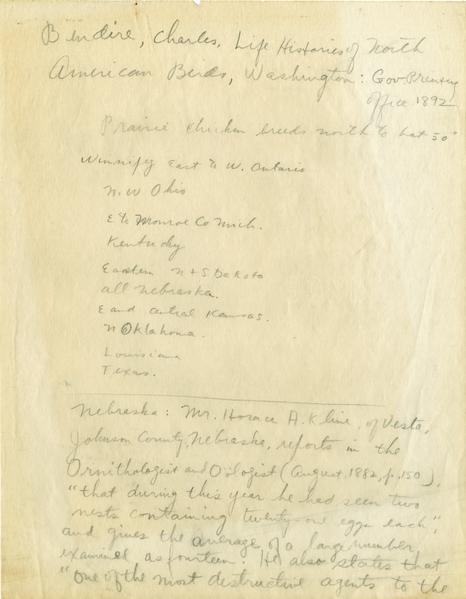 Bendire, Charles, Life Histories of North
American Birds, Washington: Gov Printing
office 1892
Prairie chicken breeds north to Lat 50°
Winnipeg East to W. Ontario
N.W Ohio
E to Monroe Co Mich.
Kentucky
Eastern N + S Dakota
all Nebraska.
E and central Kansas.
N Oklahoma.
Louisiana
Texas.
Nebraska: Mr. Horace A. Kline, of Vesta,
Johnson County, Nebraska, reports in the
Ornithologist and Oologist (August, 1882, p. 150),
"that during this year he had seen two
nests containing twenty-one eggs each",
and gives the average of a large number
examined as fourteen. He also states that
"One of the most destructive agents to the